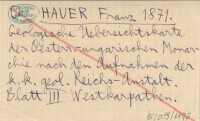 HAUER Franz 1871.
Geologische Uebersichtskarte
der Oesterr.-ungarischen Monar-
chie nach den Aufnahmen der
k. k. geol. Reichs-Anstalt.
Blatt III Westkarpathen.